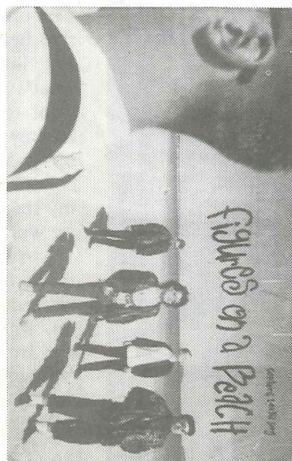 figures on a Beach